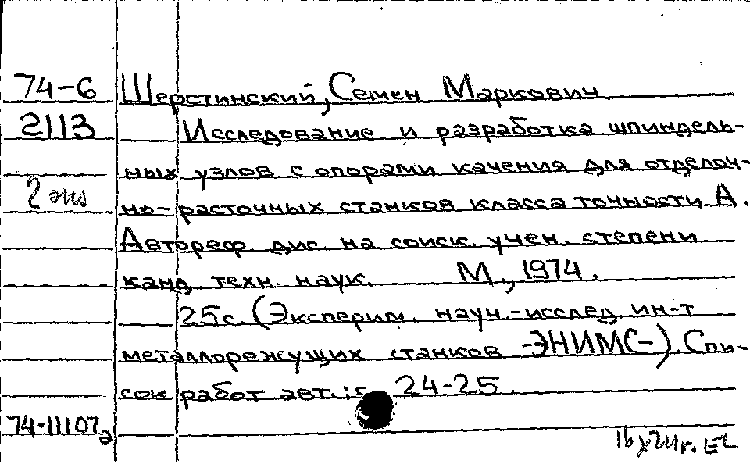 74-6 Шерстинский, Семен Маркович
2113 Исследование и разработка шпиндель-
ных узлов с опорами качения для отделоч-
2 экз но-расточных станков класса точности А.
Автореф. дис. на соиск. учен. степени
канд. техн. наук. М., 1974.
25с. (Эксперим. науч.-исслед. ин-т
металлорежущих станков -ЭНИМС-). Спи-
сок работ авт.: с. 24-25
74-11107а